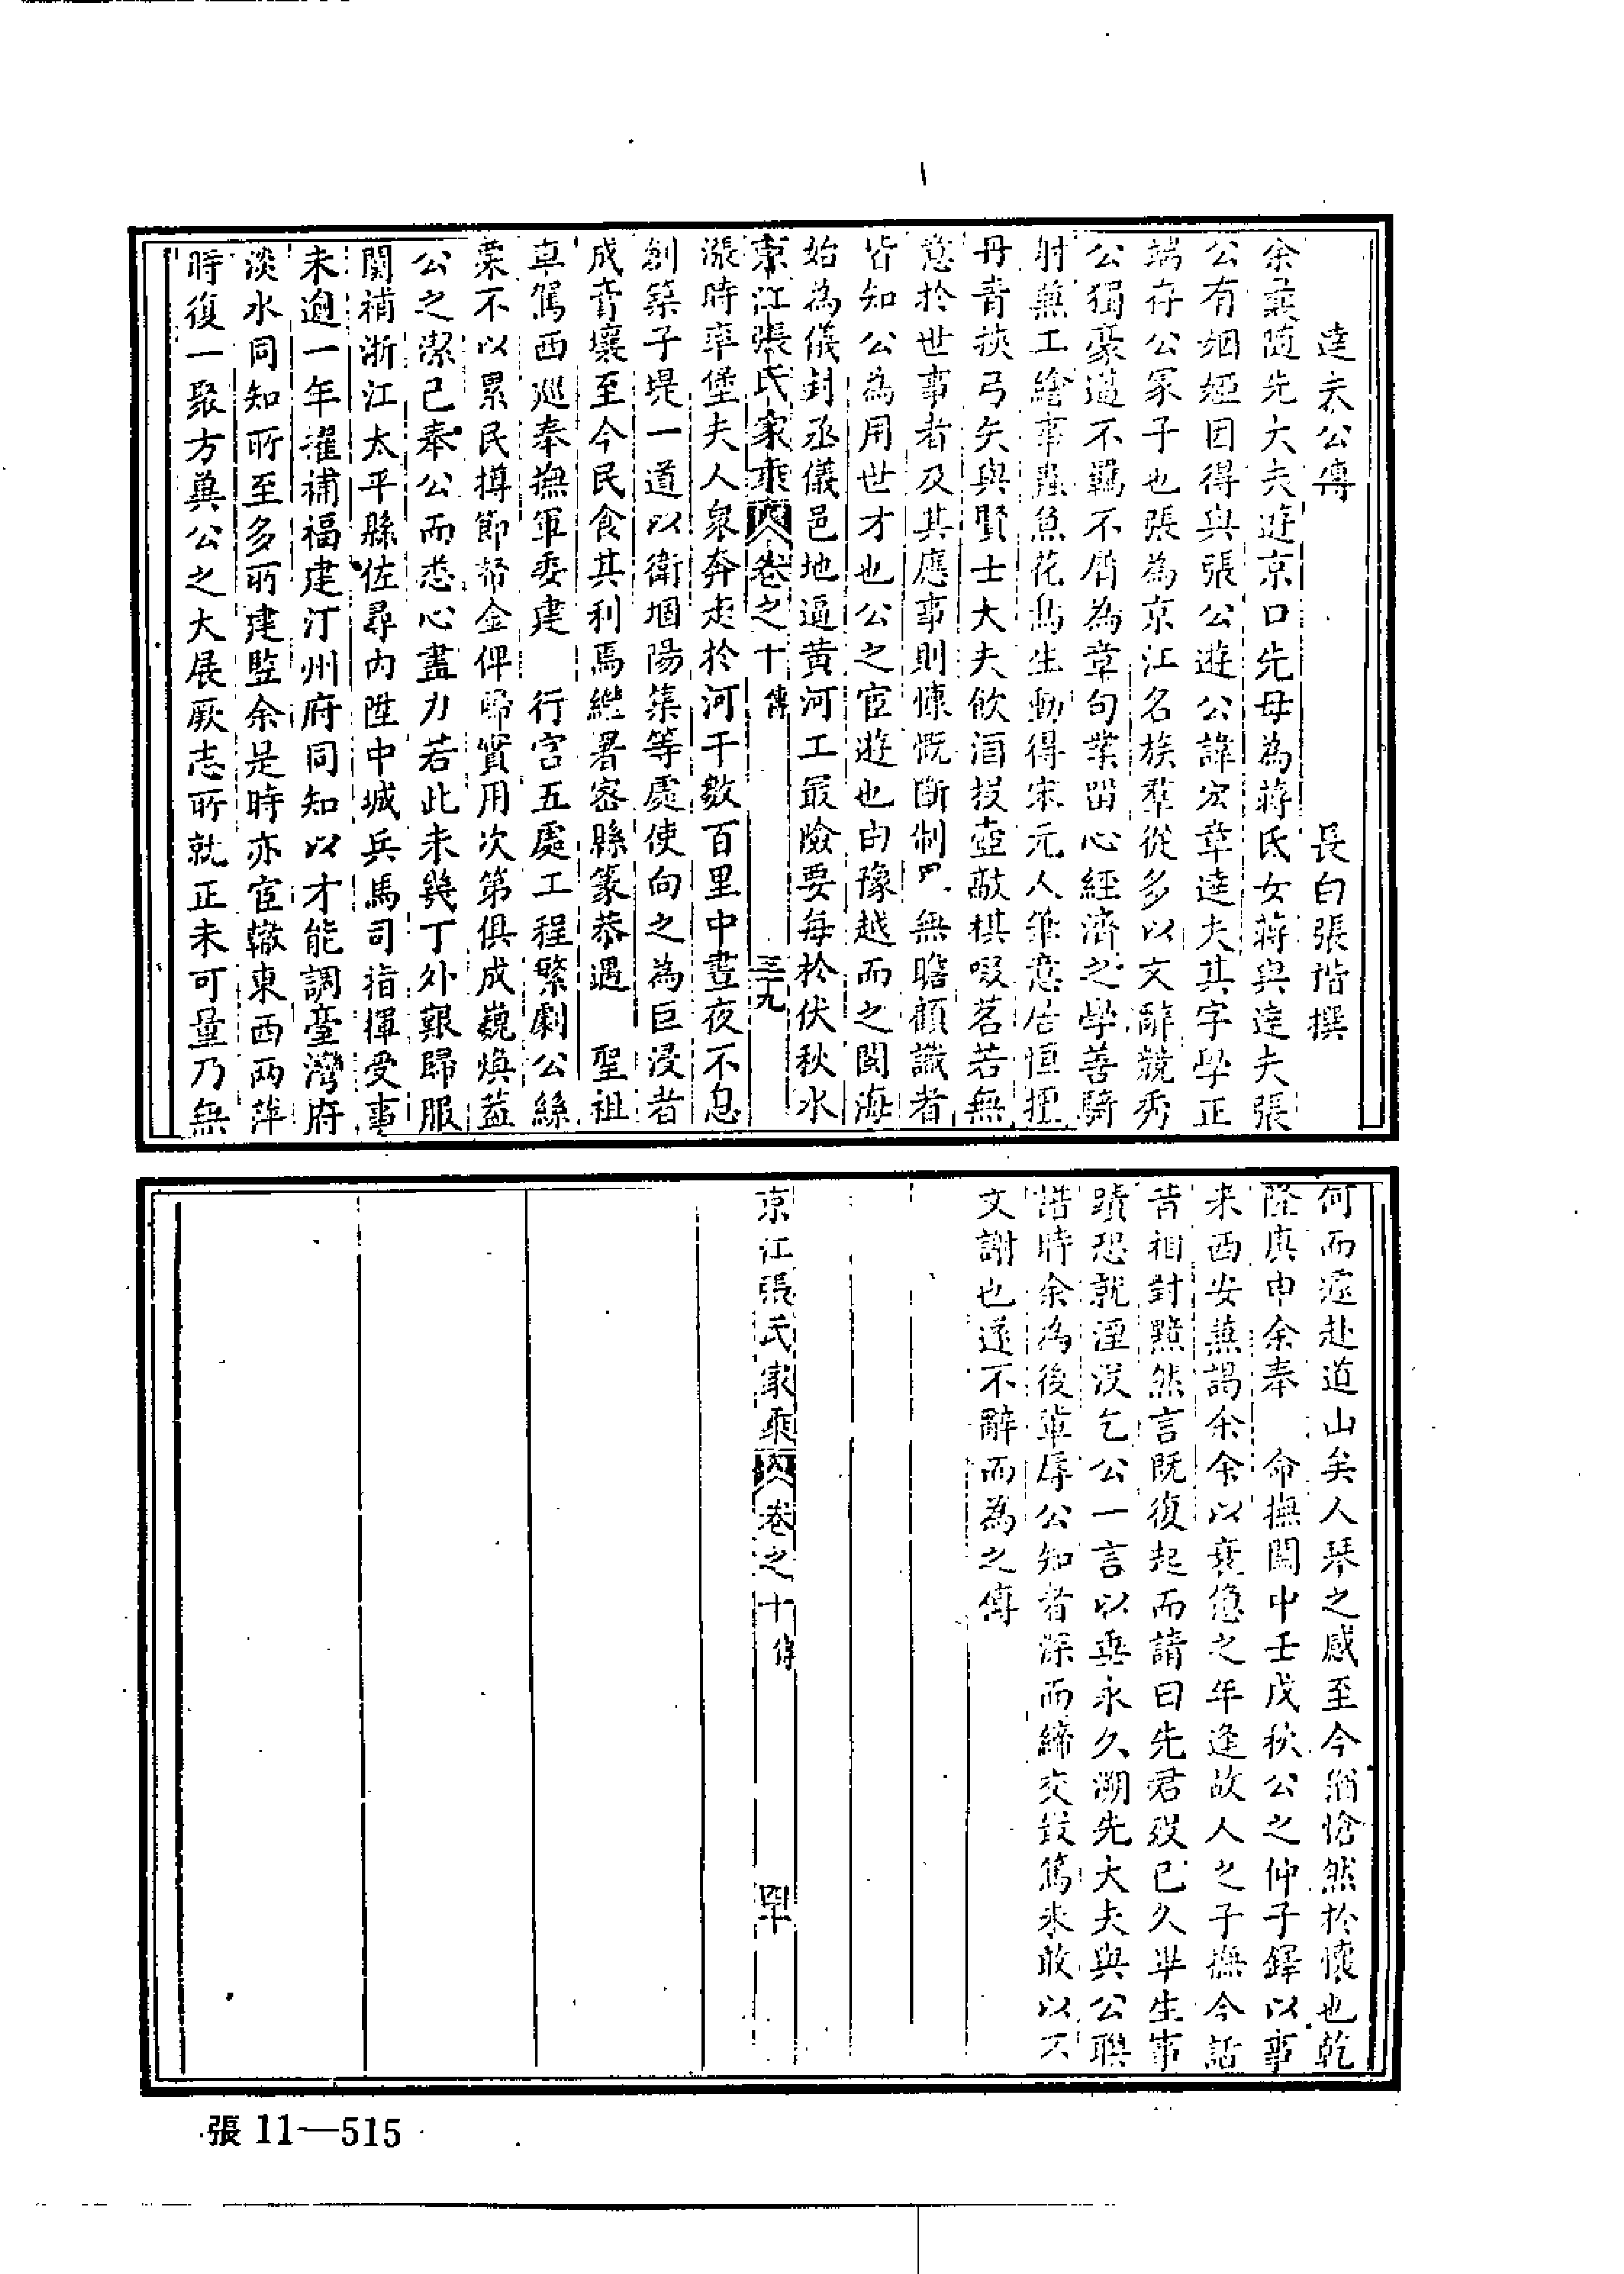 達夫公傳
長白張楷撰
余曩隨先大夫遊京口先母為蔣氏女蔣與達夫張
公有姻婭因得與張公遊公諱宏章達夫其字學正
端存公冢子也張為京江名族羣從多以文辭競秀
公獨豪邁不羈不屑為章句業留心經濟之學善騎
射兼工繪事蟲魚花鳥生動得宋元人筆意居恒握
丹青挾弓矢與賢士大夫飲酒投壺敲棋啜茗若無
意於世事者及其應事則慷慨斷制 無瞻顧識者
皆知公為用世才也公之宦遊也由豫越而之閩海
始為儀封丞儀邑地逼黃河工最險要每於伏秋水
京江張氏家乘 卷之十 傳 三十九
漲時率堡夫人眾奔走於河干數百里中晝夜不息
創築子堤一道以衛堌陽集等處使向之為巨浸者
成膏壤至今民食其利焉繼署密縣篆恭遇 聖祖
章駕西巡奉撫軍委建 行宮五處工程繁劇公絲
粟不以累民撙節帑金俾歸實用次第俱成巍煥蓋
公之潔己奉公而悉心盡力若此未幾丁外艱歸服
闋補浙江太平縣佐尋內陞中城兵馬司指揮受事
未逾一年擢補福建汀州府同知以才能調臺灣府
淡水同知所至多所建監余是時亦宦轍東西兩萍
時復一聚方冀公之大展厥志所就正未可量乃無
何而遽赴道山矣人琴之感至今猶愴然於懷也乾
隆庚申余奉 命撫關中壬戌秋公之仲子鐸以事
来西安兼謁余余以衰憊之年逢故人之子撫今話
昔相對黯然言既復起而請曰先君歿已久畢生事
蹟恐就湮沒乞公一言以垂永久溯先大夫與公聯
譜時余為後輩辱公知者深而締交最篤未敢以不
文謝也遂不辭而為之傳
京江張氏家乘 卷之十 傳 四十
張 11—515